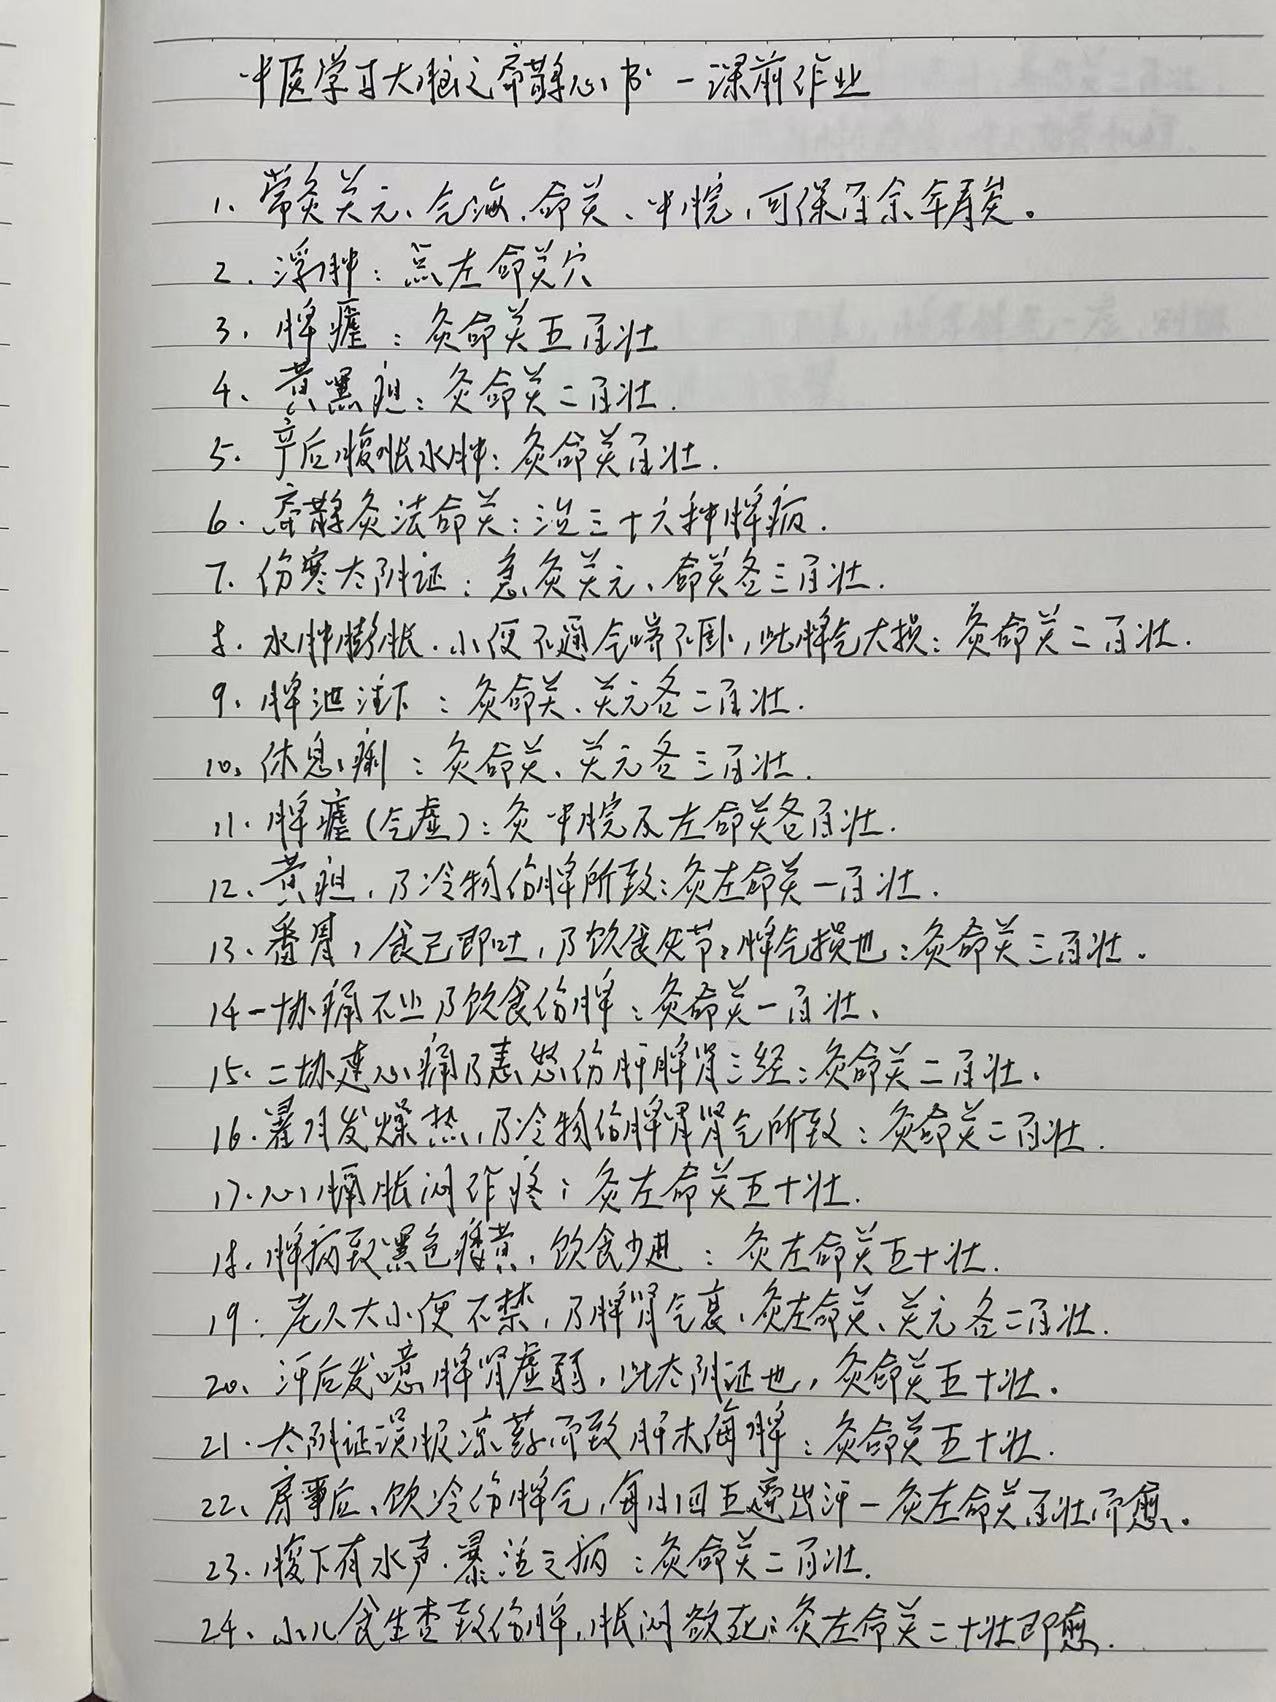 中医学习大脑之扁鹊心书一课前作业
1、常灸关元、气海、命关、中脘,可保百余年寿矣。
2. 浮肿:点左命关穴
3、脾疟:灸命关五百壮
4、黄黑疸:灸命关二百壮.
5. 产后腹胀水肿:灸命关百壮.
6. 扁鹊灸法命关:治三十六种脾病.
7. 伤寒太阴证:急灸关元、命关各三百壮.
8. 水肿膨胀.小便不通气喘不卧,此脾气大损:灸命关二百壮.
9. 脾泄注下:灸命关、关元各二百壮.
10、休息痢:灸命关、关元各三百壮.
11. 脾疟(气虚):灸中脘及左命关各百壮.
12、黄疸,乃冷物伤脾所致:灸左命关一百壮.
13. 番胃,食已即吐,乃饮食失节,脾气损也:灸命关三百壮.
14 一协痛不止乃饮食伤脾:灸命关一百壮、
15. 二协连心痛乃恚怒伤肝脾肾三经:灸命关二百壮.
16. 暑月发燥热,乃冷物伤脾胃肾气所致:灸命关二百壮.
17. 心膈胀闷作疼:灸左命关五十壮.
18. 脾病致黑色痿黄,饮食少进:灸左命关五十壮.
19. 老人大小便不禁,乃脾肾气衰、灸左命关、关元各二百壮.
20、汗后发噫,脾肾虚弱,此太阴证也,灸命关五十壮.
21. 太阴证误服凉药而致肝木侮脾:灸命关五十壮.
22、房事后、饮冷伤脾气,每日四五遍出汗一灸左命关百壮而愈.
23. 腹下有水声.暴注之病:灸命关二百壮.
24. 小儿食生杏致伤脾,胀闷欲死:灸左命关二十壮即愈.